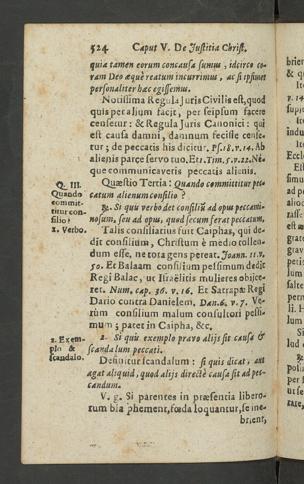 524 Caput V. De Justitia Christ.
quia tamen eorum concausa sumus, idcirco co-
ram Deo æquè reatum incurrimus, ac si ipsimet
personaliter hæc egissemus.
Notissima Regula Juris Civilis est, quod
quis per alium facit, per seipsum facere
censetur: & Regula Juris Canonici: qui
est causa damni, damnum fecisse cense-
tur; de peccatis his dicitur. Ps. 18. v. 14. Ab
alienis parce servo tuo. Et 1. Tim. 5. v. 22. Ne-
que communicaveris peccatis alienis.
Q. III.
Quando
commit-
titur con-
silio?
1. Verbo.
Quæstio Tertia: Quando committitur pec-
catum alienum consilio?
R. Si quis verbo det consiliũ ad opus peccami-
nosum, seu ad opus, quod secum ferat peccatum.
Talis consiliatius fuit Caiphas, qui de-
dit consilium, Christum è medio tollen-
dum esse, ne tota gens pereat. Joann. 11. v.
50. Et Balaam consilium pessimum dedit
Regi Balac, ut Israëlitis mulieres objice-
ret. Num. cap. 36. v. 16. Et Satrapæ Regi
Dario contra Danielem. Dan. 6. v. 7. Ve-
rùm consilium malum consultori pessi-
mum; patet in Caipha, &c.
2. Exem-
plo &
scandalo.
2. Si quis exemplo pravo aliis sit causa &
scandalum peccati.
Definitur scandalum: si quis dicat, aut
agat aliquid, quod aliis directè causa sit ad pec-
candum.
V. g. Si parentes in præsentia libero-
rum blasphement, fœda loquantur, se ine-
brient,